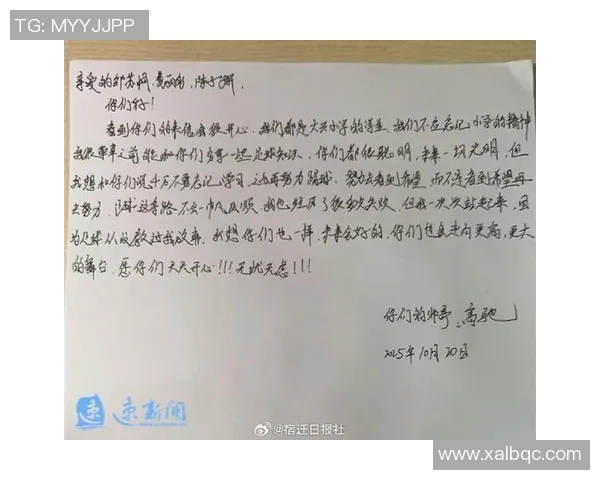 TG: MYYJJPP
亲爱的邹苏桐、
你们好！
看到你们的来信我很开心，我们都是大兴小学的学生，我们不应忘记小学的精神
我很荣幸之前能和你们分享一些足球知识，你们都很聪明，未来一切光明，但
我想和你们说千万不要忘记学习，之后再努力踢球，努力去看到希望，而不是看到希望再
去努力，踢球这条路不会一帆风顺，我也经历了很多次失败，但我一次次站起来，因
为足球从没教过我放弃，我想你们也一样，未来会好的，你们也会走向更高，更大
的舞台，愿你们天天开心！！！无忧无虑！！！
你们的师哥：高驰
2025年10月20日
速新闻
@宿迁日报社
www.xalbqc.com